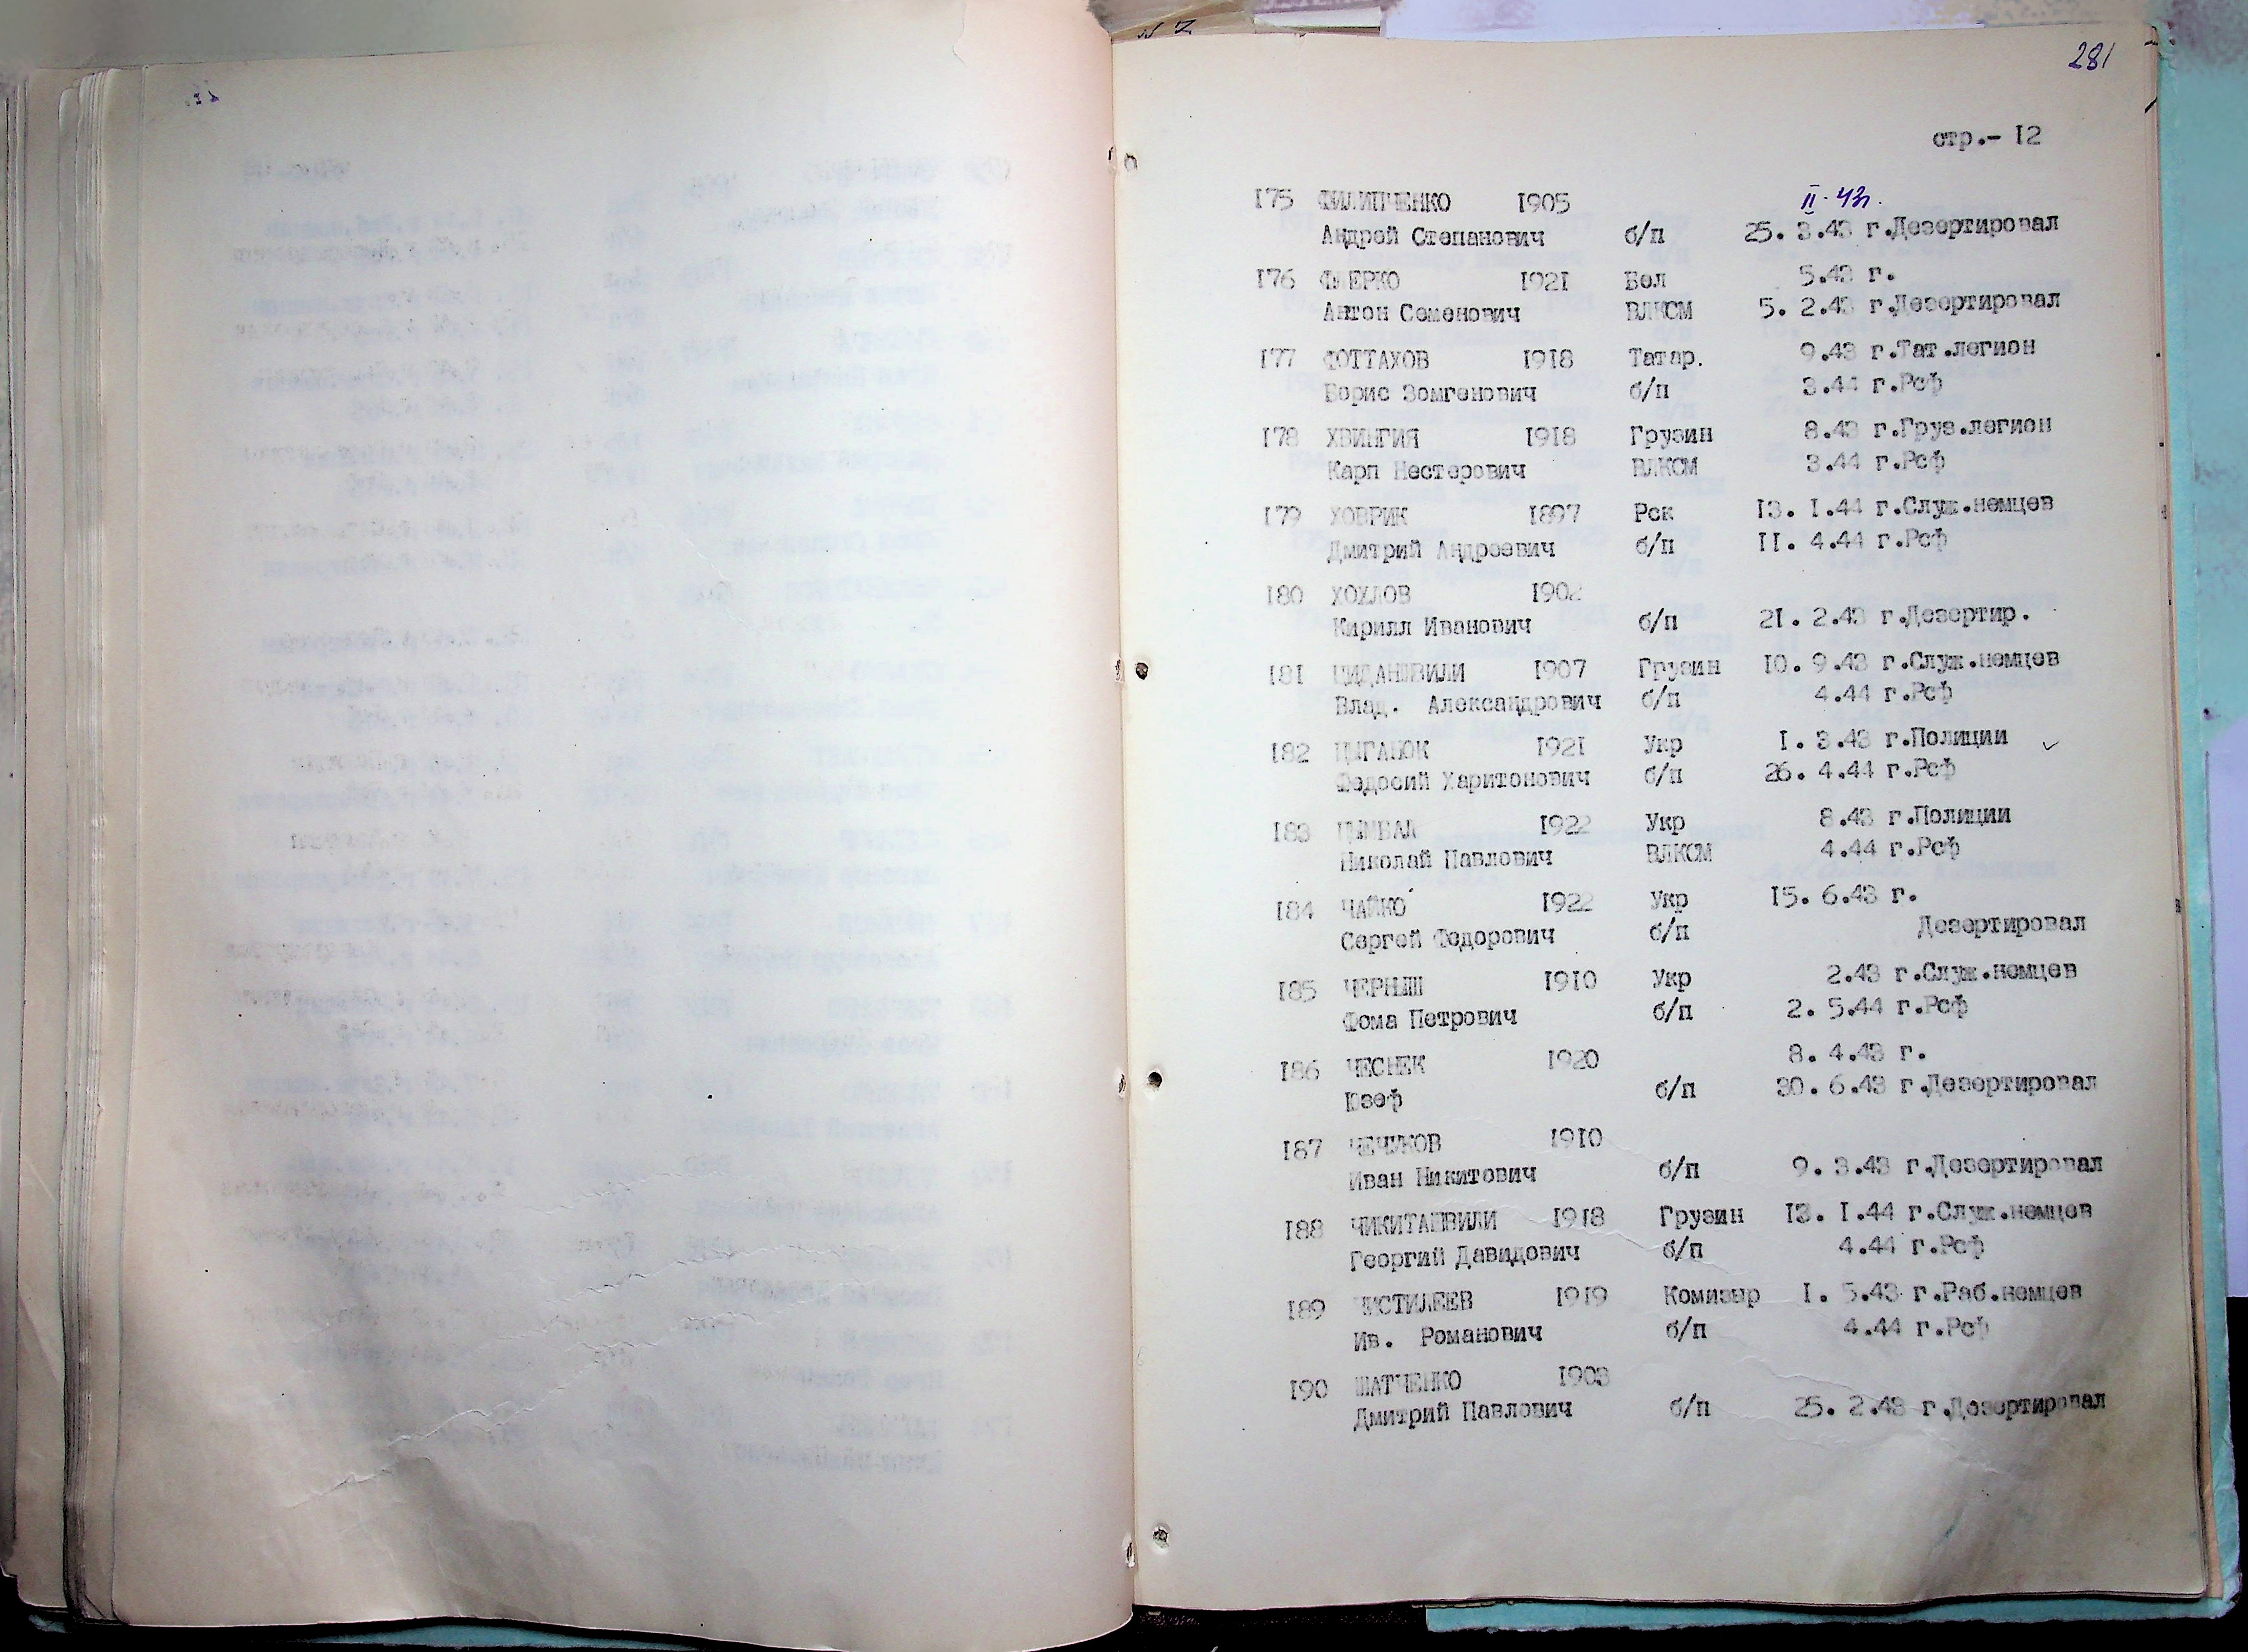 281
стр.- I2
I75 ФИЛИПЧЕНКО I905 II.43г.
Андрей Степанович б/п 25. 3.43 г.Дезертировал
I76 ФЛЕРКО I92I Бел 5.43 г.
Антон Семенович ВЛКСМ 5. 2.43 г.Дезертировал
I77 ФОТТАХОВ I9I8 Татар. 9.43 г.Тат.легион
Борис Зомгенович б/п 3.44 г.Рсф
I78 ХВИНГИЯ I9I8 Грузин 8.43 г.Груз.легион
Карп Нестерович ВЛКСМ 3.44 г.Рсф
I79 ХОВРИК I897 Рск I3. I.44 г.Служ.немцев
Дмитрий Андреевич б/п II. 4.44 г.Рсф
I80 ХОХЛОВ I902
Кирилл Иванович б/п 2I. 2.43 г.Дезертир.
I8I ЦИДАНШВИЛИ I907 Грузин I0. 9.43 г.Служ.немцев
Влад. Александрович б/п 4.44 г.Рсф
I82 ЦЫГАНОК I92I Укр I. 3.43 г.Полиции
Федосий Харитонович б/п 26. 4.44 г.Рсф
I83 ЦЫМБАЛ I922 Укр 8.43 г.Полиции
Николай Павлович ВЛКСМ 4.44 г.Рсф
I84 ЧАЙКО I922 Укр I5. 6.43 г.
Сергей Федорович б/п Дезертировал
I85 ЧЕРНЫШ I9I0 Укр 2.43 г.Служ.немцев
Фома Петрович б/п 2. 5.44 г.Рсф
I86 ЧЕСНЕК I920 8. 4.43 г.
Юзеф б/п 30. 6.43 г.Дезертировал
I87 ЧЕЧУКОВ I9I0
Иван Никитович б/п 9. 3.43 г.Дезертировал
I88 ЧИКИТАШВИЛИ I9I8 Грузин I3. I.44 г.Служ.немцев
Георгий Давидович б/п 4.44 г.Рсф
I89 ЧИСТИЛЕЕВ I9I9 Комизыр I. 5.43 г.Раб.немцев
Ив. Романович б/п 4.44 г.Рсф
I90 ШАТЧЕНКО I903
Дмитрий Павлович б/п 25. 2.43 г.Дезертировал